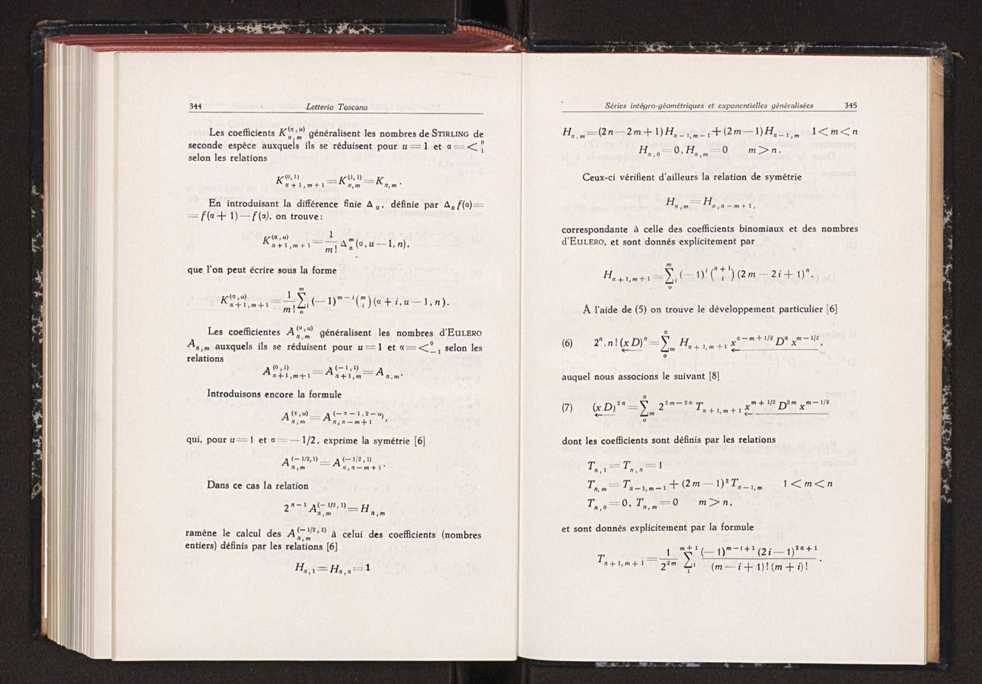 344 Letterio Toscano
Les coefficients K_{n,m}^{(α,u)} généralisent les nombres de STIRLING de
seconde espèce auxquels ils se réduisent pour u = 1 et α = <_1^0
selon les relations
K_{n+1,m+1}^{(0,1)} = K_{n,m}^{(1,1)} = K_{n,m}.
En introduisant la différence finie Δ_α, définie par Δ_α f(α) =
= f(α + 1) — f(α), on trouve:
K_{n+1,m+1}^{(α,u)} = \frac{1}{m!} Δ_α^m (α, u — 1, n),
que l'on peut écrire sous la forme
K_{n+1,m+1}^{(α,u)} = \frac{1}{m!} \sum_0^m{}_i (—1)^{m-i} \binom{m}{i} (α + i, u — 1, n).
Les coefficientes A_{n,m}^{(α,u)} généralisent les nombres d'EULERO
A_{n,m} auxquels ils se réduisent pour u = 1 et α = <_{-1}^0 selon les
relations
A_{n+1,m+1}^{(0,1)} = A_{n+1,m}^{(-1,1)} = A_{n,m}.
Introduisons encore la formule
A_{n,m}^{(α,u)} = A_{n,n-m+1}^{(-α-1,2-u)},
qui, pour u = 1 et α = — 1/2, exprime la symétrie [6]
A_{n,m}^{(-1/2,1)} = A_{n,n-m+1}^{(-1/2,1)}.
Dans ce cas la relation
2^{n-1} A_{n,m}^{(-1/2,1)} = H_{n,m}
ramène le calcul des A_{n,m}^{(-1/2,1)} à celui des coefficients (nombres
entiers) définis par les relations [6]
H_{n,1} = H_{n,n} = 1
Séries intégro-géométriques et exponentielles généralisées 345
H_{n,m} = (2n — 2m + 1) H_{n-1,m-1} + (2m — 1) H_{n-1,m} 1 < m < n
H_{n,0} = 0, H_{n,m} = 0 m > n.
Ceux-ci vérifient d'ailleurs la relation de symétrie
H_{n,m} = H_{n,n-m+1},
correspondante à celle des coefficients binomiaux et des nombres
d'EULERO, et sont donnés explicitement par
H_{n+1,m+1} = \sum_0^m{}_i (—1)^i \binom{n+1}{i} (2m — 2i + 1)^n.
À l'aide de (5) on trouve le développement particulier [6]
(6) 2^n . n! (x D)^n = \sum_0^n{}_m H_{n+1,m+1} x^{n-m+1/2} D^n x^{m-1/2},
auquel nous associons le suivant [8]
(7) (x D)^{2n} = \sum_0^n{}_m 2^{2m-2n} T_{n+1,m+1} x^{m+1/2} D^{2m} x^{m-1/2}
dont les coefficients sont définis par les relations
T_{n,1} = T_{n,n} = 1
T_{n,m} = T_{n-1,m-1} + (2m — 1)^2 T_{n-1,m} 1 < m < n
T_{n,0} = 0, T_{n,m} = 0 m > n,
et sont donnés explicitement par la formule
T_{n+1,m+1} = \frac{1}{2^{2m}} \sum_1^{m+1}{}_i \frac{(—1)^{m-i+1} (2i — 1)^{2n+1}}{(m — i + 1)! (m + i)!}.